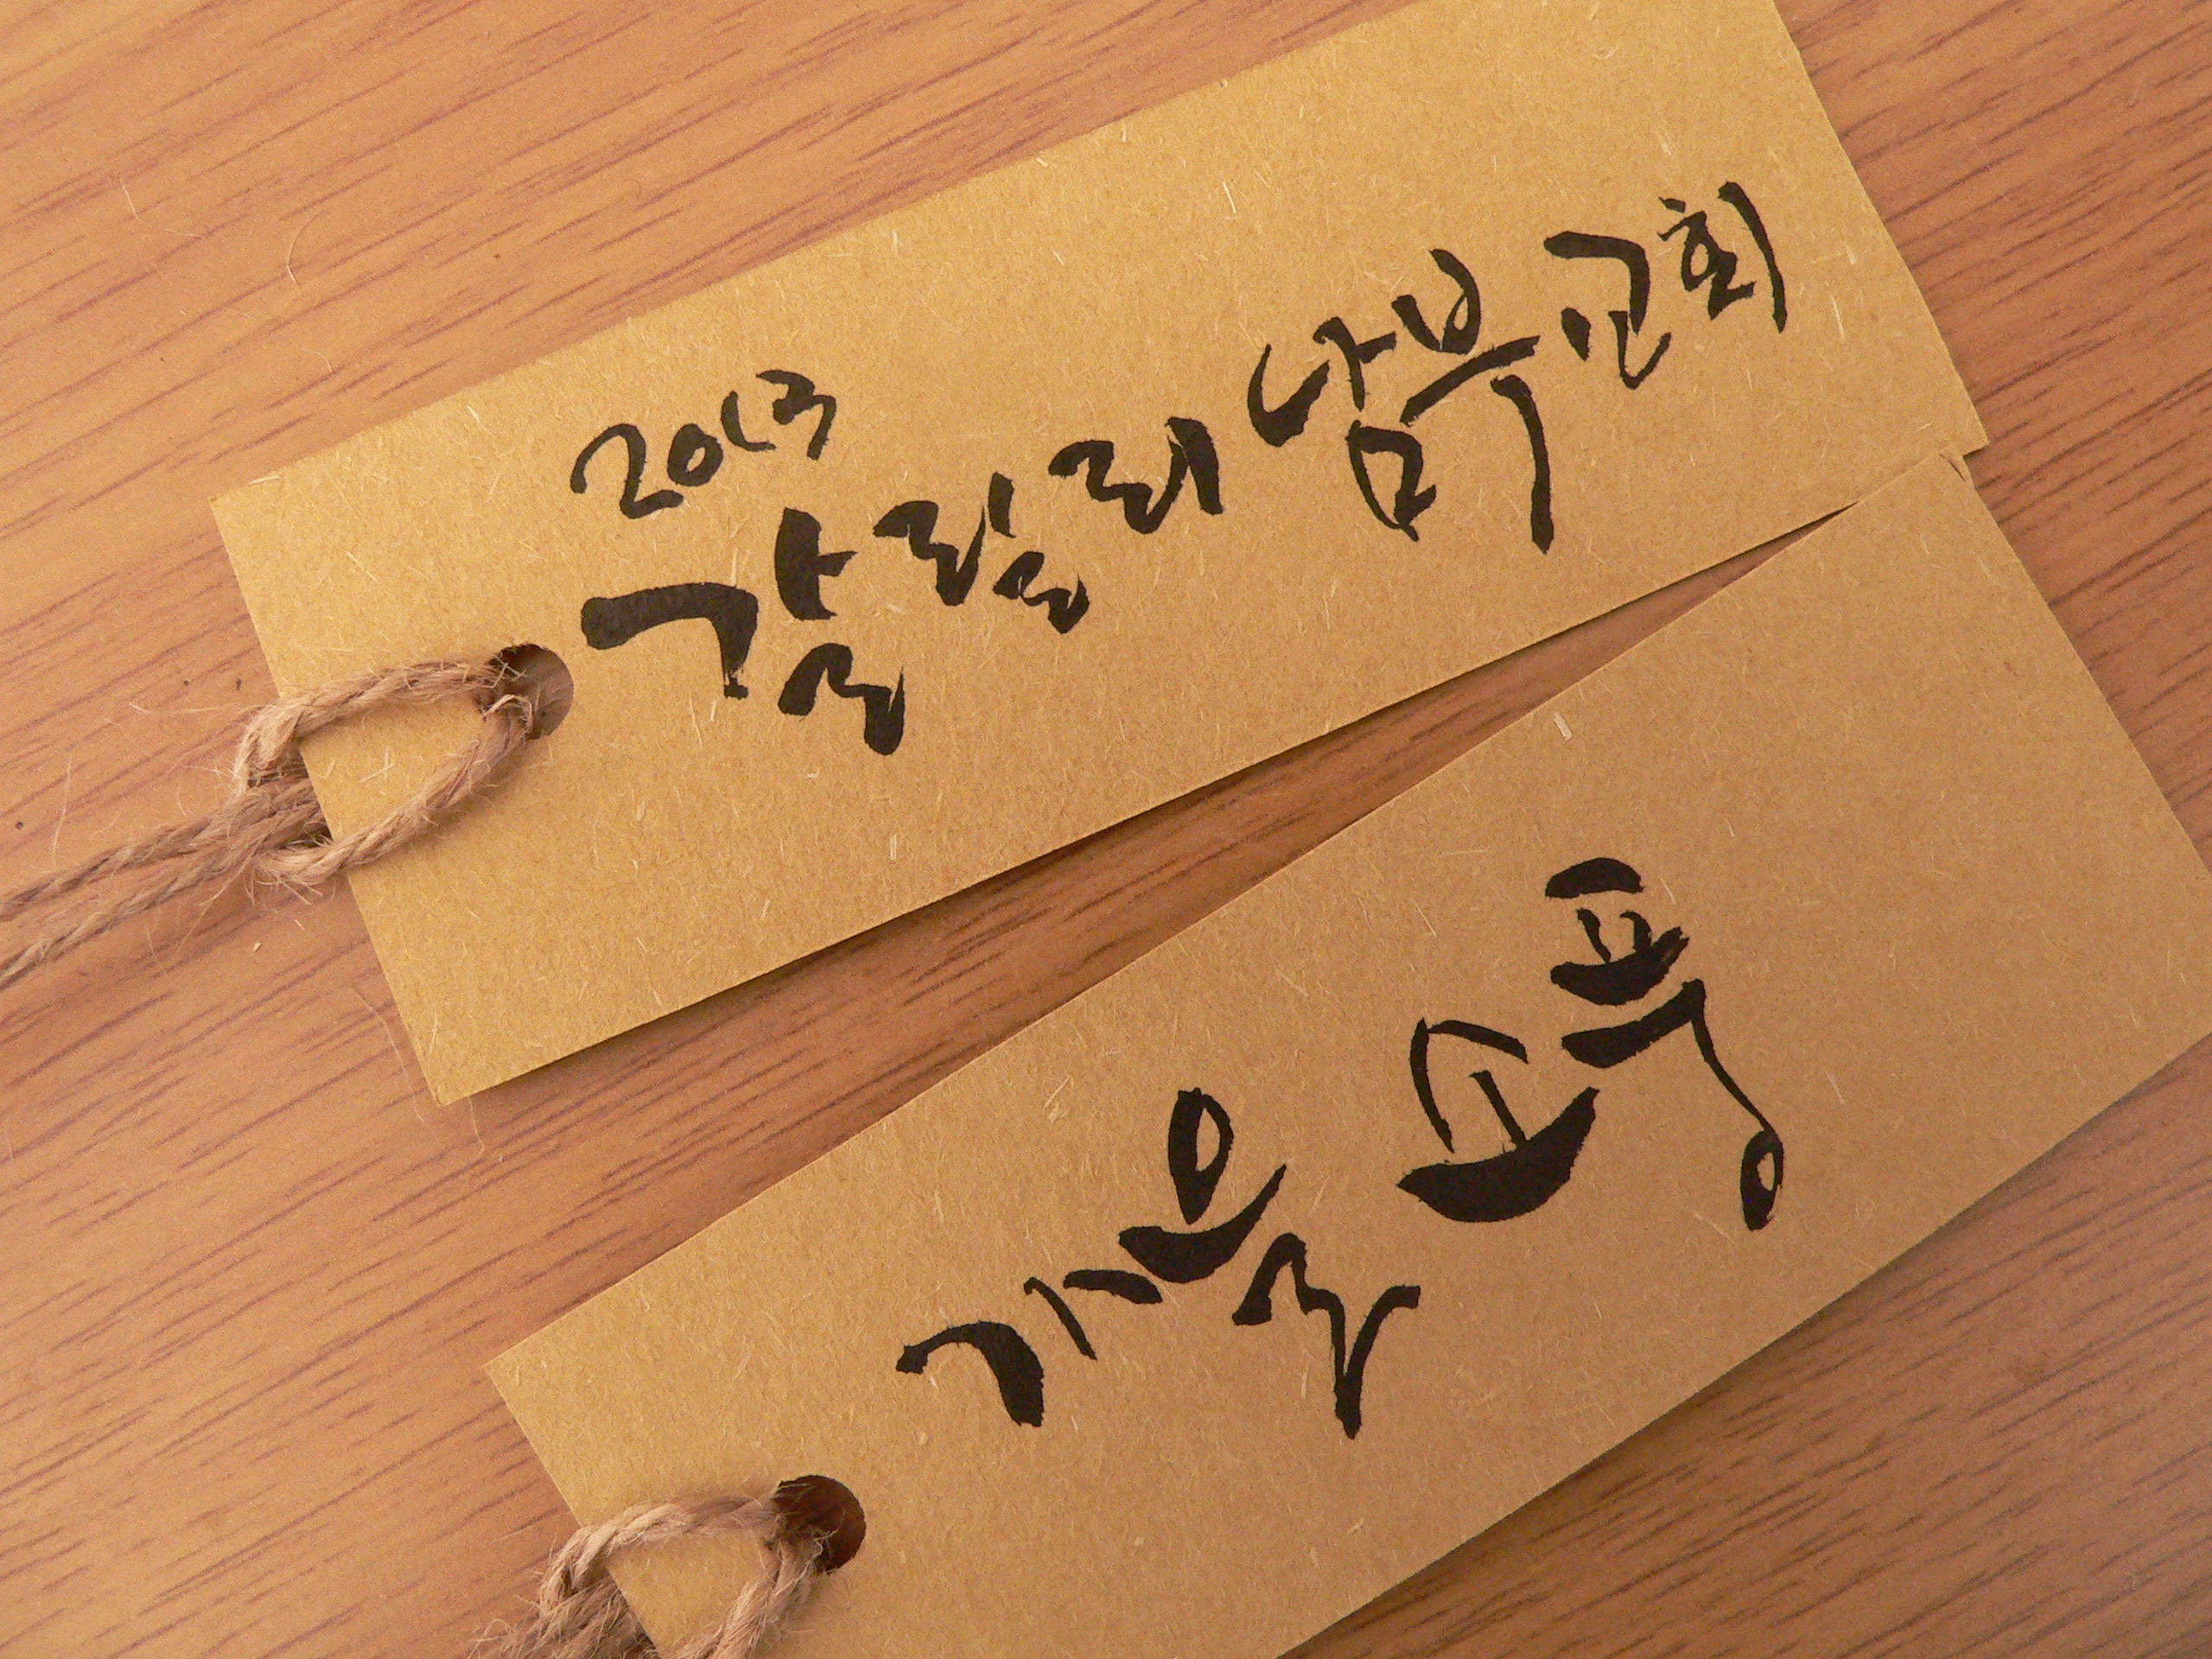 2013
갈릴리 남부교회
가을 소풍